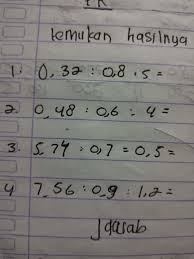 PR
Temukan hasilnya
1. 0,32 : 0,8 . 5 =
2. 0,48 : 0,6 : 4 =
3. 5,74 : 0,7 = 0,5 =
4 7,56 : 0,9 : 1,2 =
Jawab